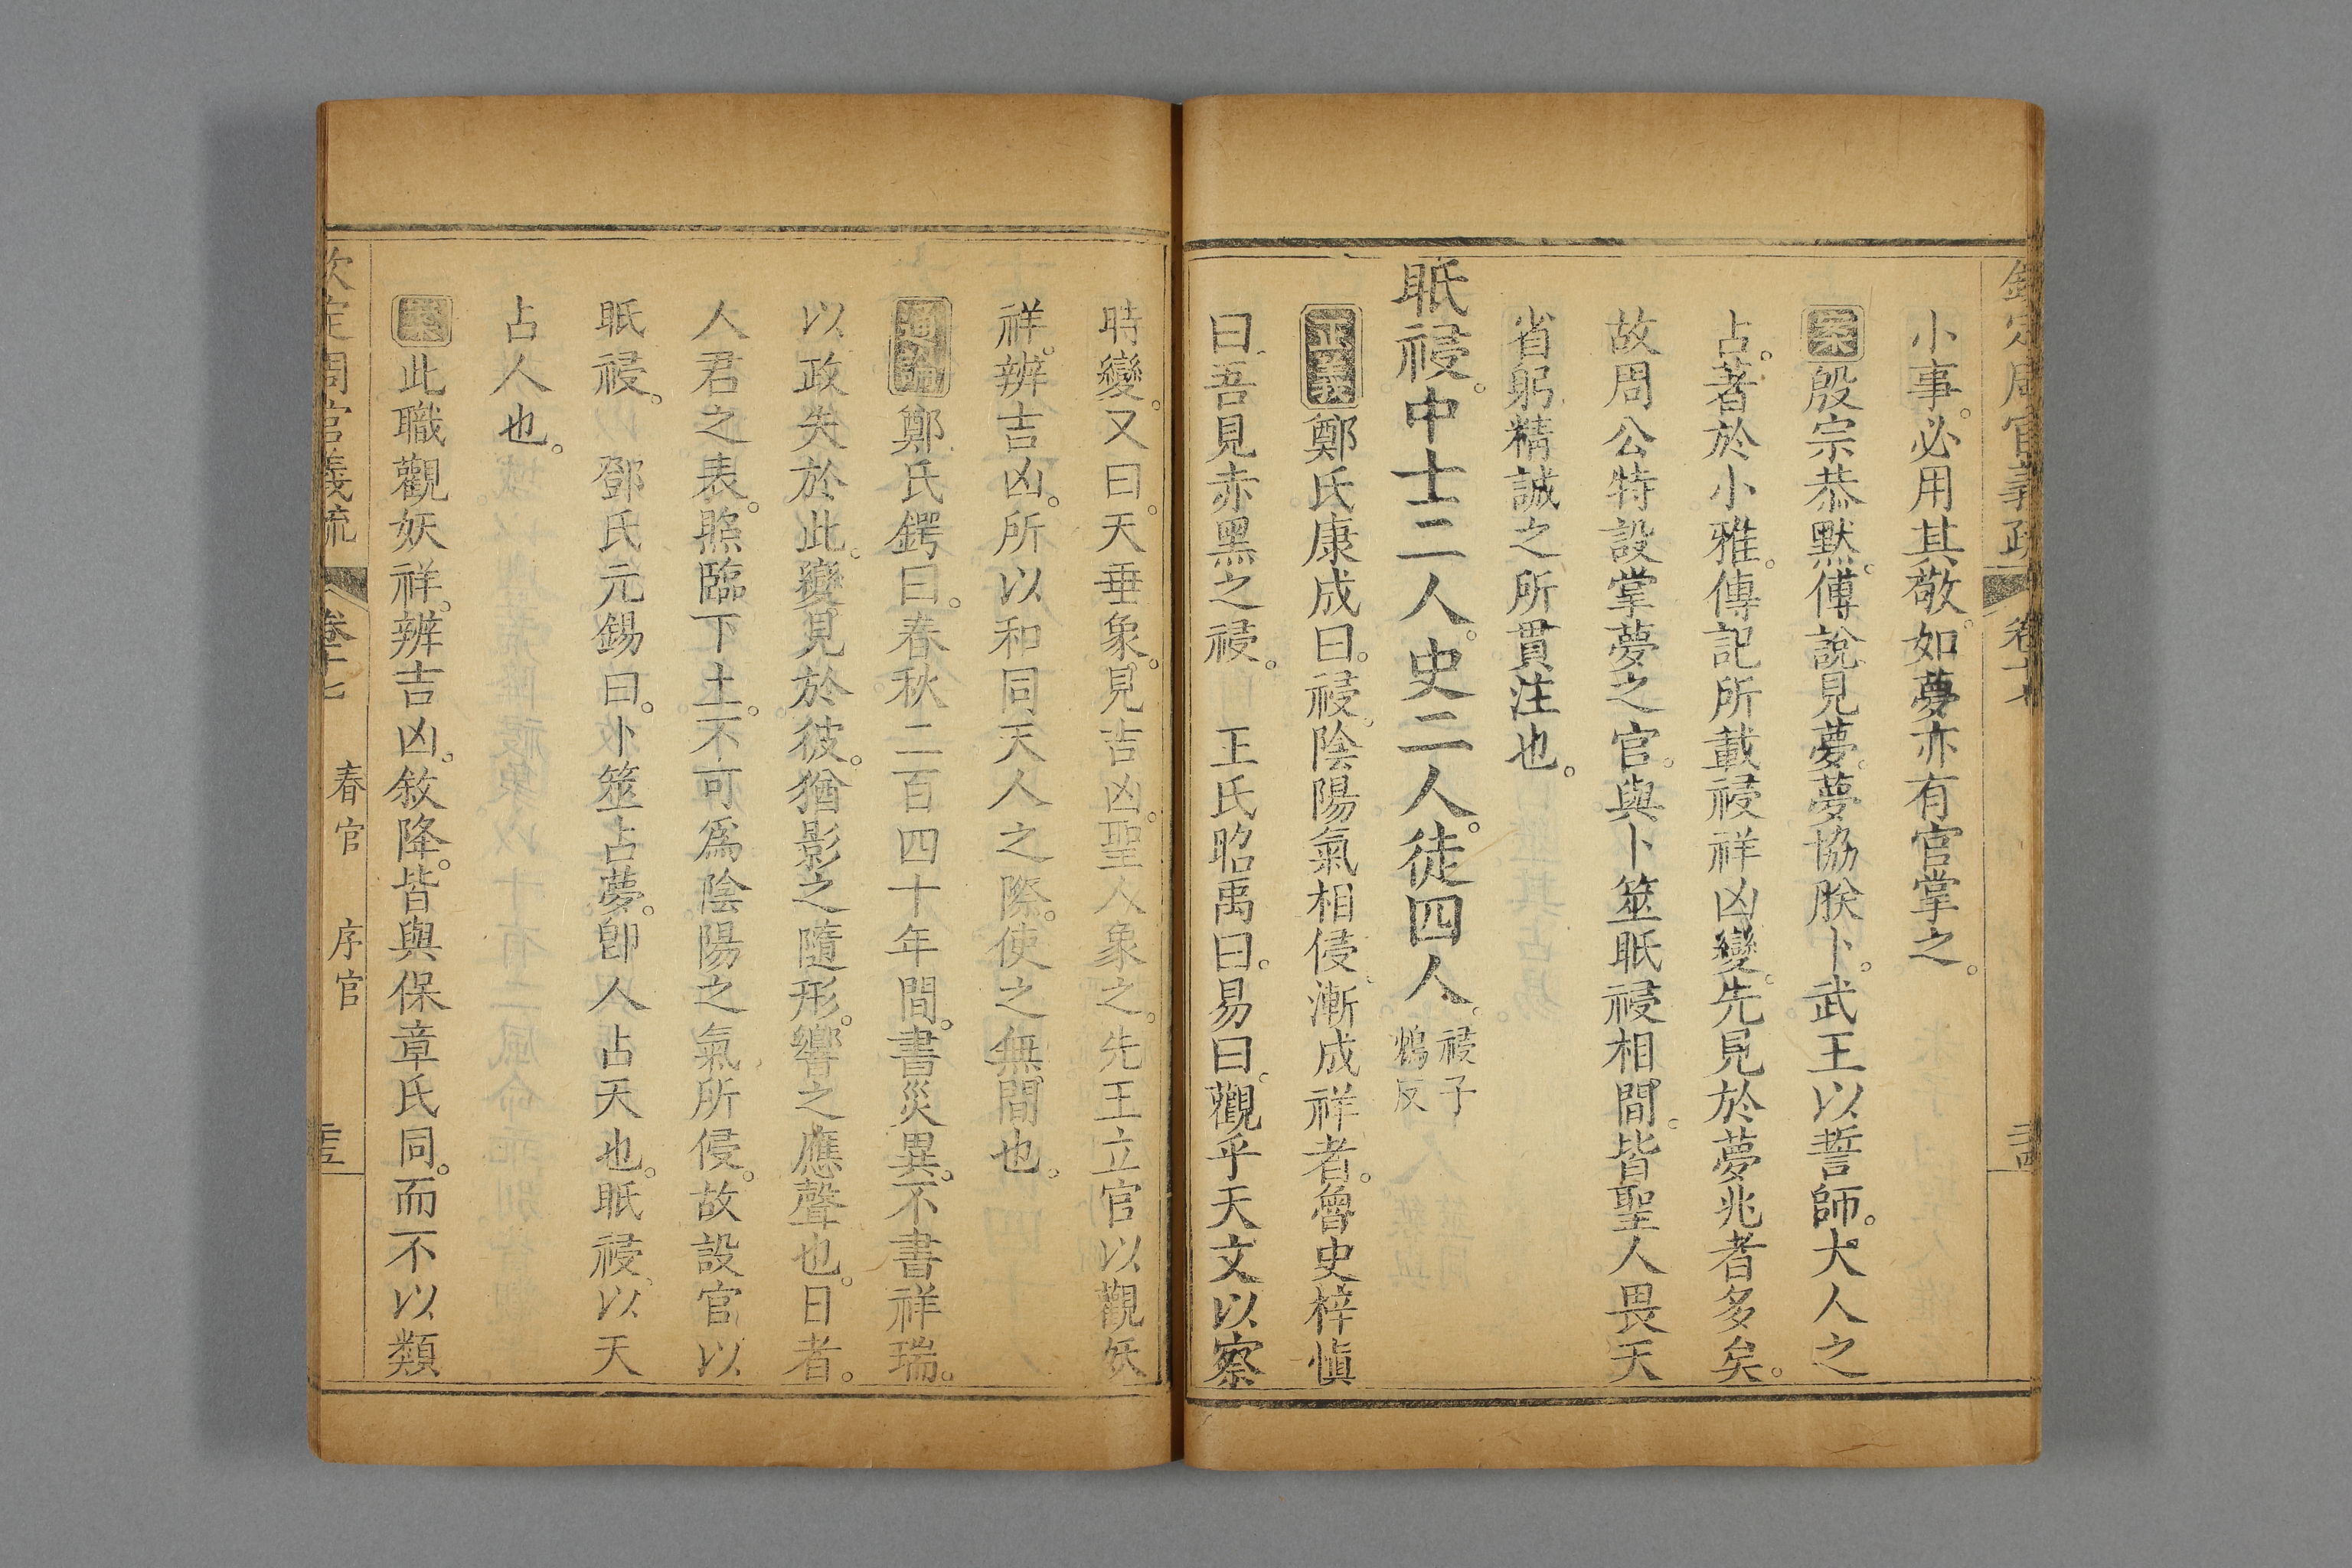 欽定周官義疏 卷十七
小事。必用其敬。如夢亦有官掌之。
案殷宗恭默。傅說見夢。夢協朕卜。武王以誓師。大人之
占。著於小雅。傳記所載祲祥凶變。先見於夢兆者多矣。
故周公特設掌夢之官。與卜筮眡祲相間。皆聖人畏天
省躬精誠之所貫注也。
眡祲。中士二人。史二人。徒四人。祲子鴆反
正義鄭氏康成曰。祲。陰陽氣相侵。漸成祥者。魯史梓愼
曰。吾見赤黑之祲。 王氏昭禹曰。易曰。觀乎天文以察
時變。又曰。天垂象。見吉凶。聖人象之。先王立官以觀妖
祥。辨吉凶。所以和同天人之際。使之無間也。
通論鄭氏鍔曰。春秋二百四十年間。書災異。不書祥瑞。
以政失於此。變見於彼。猶影之隨形。響之應聲也。日者。
人君之表。照臨下土。不可爲陰陽之氣所侵。故設官以
眡祲。 鄧氏元錫曰。卜筮占夢。卽人占天也。眡祲。以天
占人也。
案此職觀妖祥。辨吉凶。敘降。皆與保章氏同。而不以類
欽定周官義疏 卷十七 春官 序官